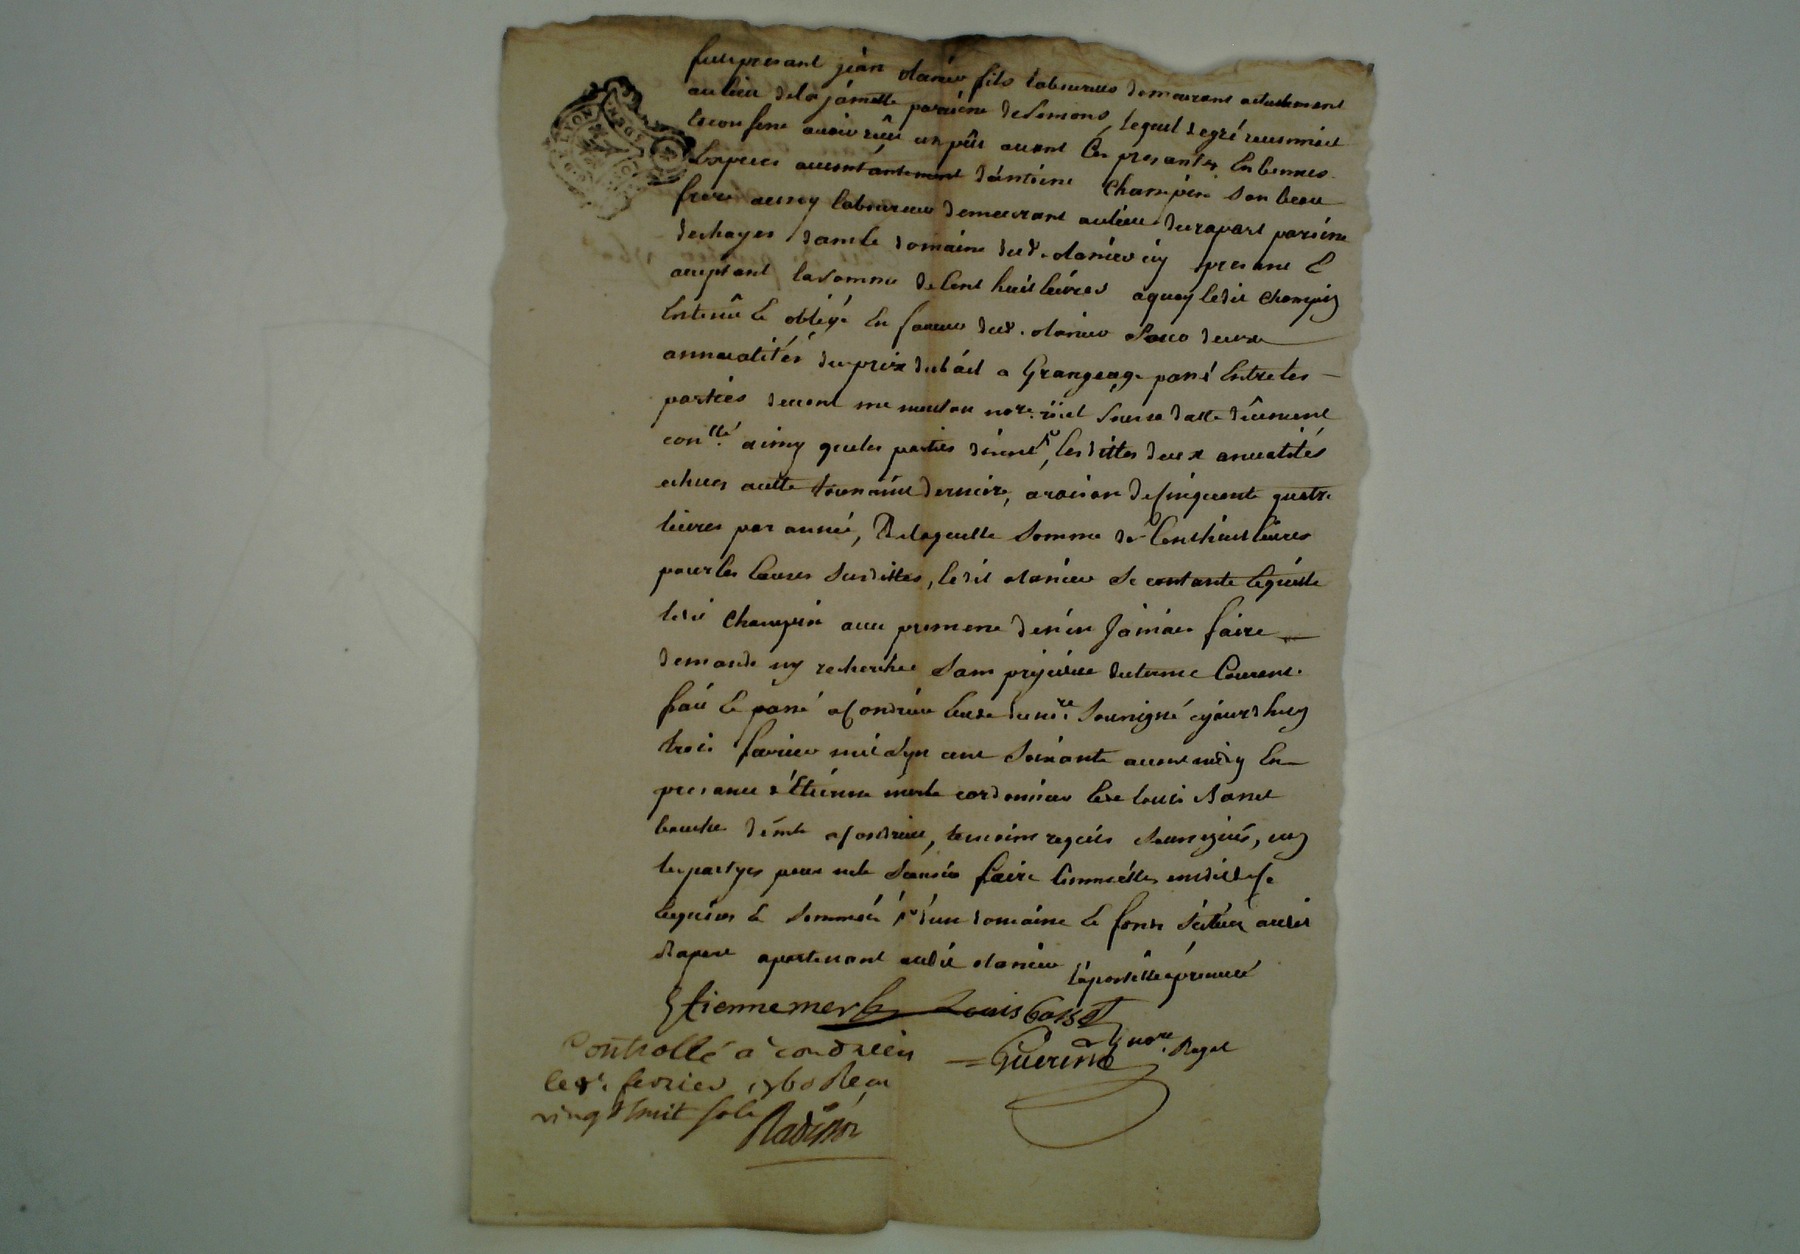 fut present jean olanier fils laboureur demeurant actuellement
au lieu de la jamette paroisse de Semons, lequel de gré reconnoit
et confesse avoir reçu un peu avant ces presantes en bonnes
especes d'antoine Champin son beau
frere aussy laboureur demeurant au lieu du rapart paroisse
deshayes dans le domaine dud. olanier icy present &
acceptant la somme de cent huit livres a quoy ledit Champin
est tenû & obligé en faveur dud. olanier pour deux
annualités du prix du bail a Grangeage passé entre les
parties devant me nore. royal sous sa datte düement
conllé. ainsy que les parties disent, les dittes deux anualités
echues a la toussaint derniere, a raison de cinquante quatre
livres par année, de laquelle somme de cent huit livres
pour les causes susdittes, ledit olanier se contante & quitte
ledit Champin avec promesse de n'en jamais faire
demande ny recherche sans prejudice du terme courant.
fait & passé a Condrieu etude du nore. soussigné ajourdhuy
trois fevrier mil sept cent soixante avant midy en
presence d'Etienne merle cordonnier & de louis Basset
boucher dem.t a Condrieu, temoins requis soussignés, non
les partyes pour ne le sçavoir faire
requis & sommés d'un domaine & fonds scitués audit
Rapart apartenant audit olanier
Etienne merle Louis Basset
Guerin nore. Royal
Controllé a condrieu
le 8e. fevrier 1760 Reçu
vingt huit sols